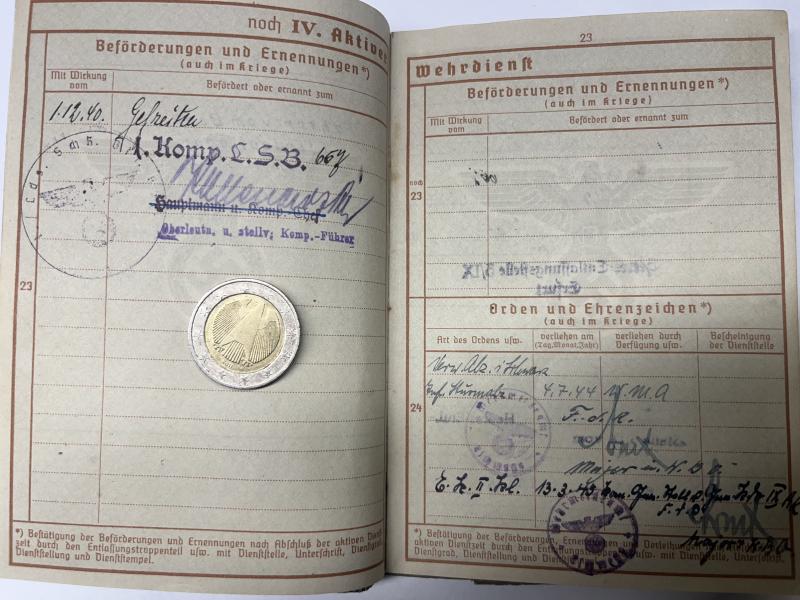 noch IV. Aktiver
Beförderungen und Ernennungen*)
(auch im Kriege)
Mit Wirkung vom
Befördert oder ernannt zum
1.12.40. Gefreiten
1. Komp. L.S.B.
Hauptmann u. Komp.-Chef
Oberleutn. u. stellv. Komp.-Führer
23
*) Bestätigung der Beförderungen und Ernennungen nach Abschluß der aktiven Dienst
zeit durch den Entlassungstruppenteil usw. mit Dienststelle, Unterschrift, Dienstgrad,
Dienststellung und Dienststempel.
23
Wehrdienst
Beförderungen und Ernennungen*)
(auch im Kriege)
Mit Wirkung vom
Befördert oder ernannt zum
noch
23
Entlassungsstelle 3/IX
Erfurt
Orden und Ehrenzeichen*)
(auch im Kriege)
Art des Ordens usw.
verliehen am
(Tag, Monat, Jahr)
verliehen durch
Verfügung usw.
Bescheinigung
der Dienststelle
Verw. Abz. i. Schwarz
Inf. Sturmabz. 4.7.44 W.M.A
24
F.d.R.
Major u.
E.K. II. Kl. 13.3.43
Major
*) Bestätigung der Beförderungen, Ernennungen und Verleihungen
aktiven Dienstzeit durch den Entlassungstruppenteil usw. mit Dienststelle, Unterschrift,
Dienstgrad, Dienststellung und Dienststempel.